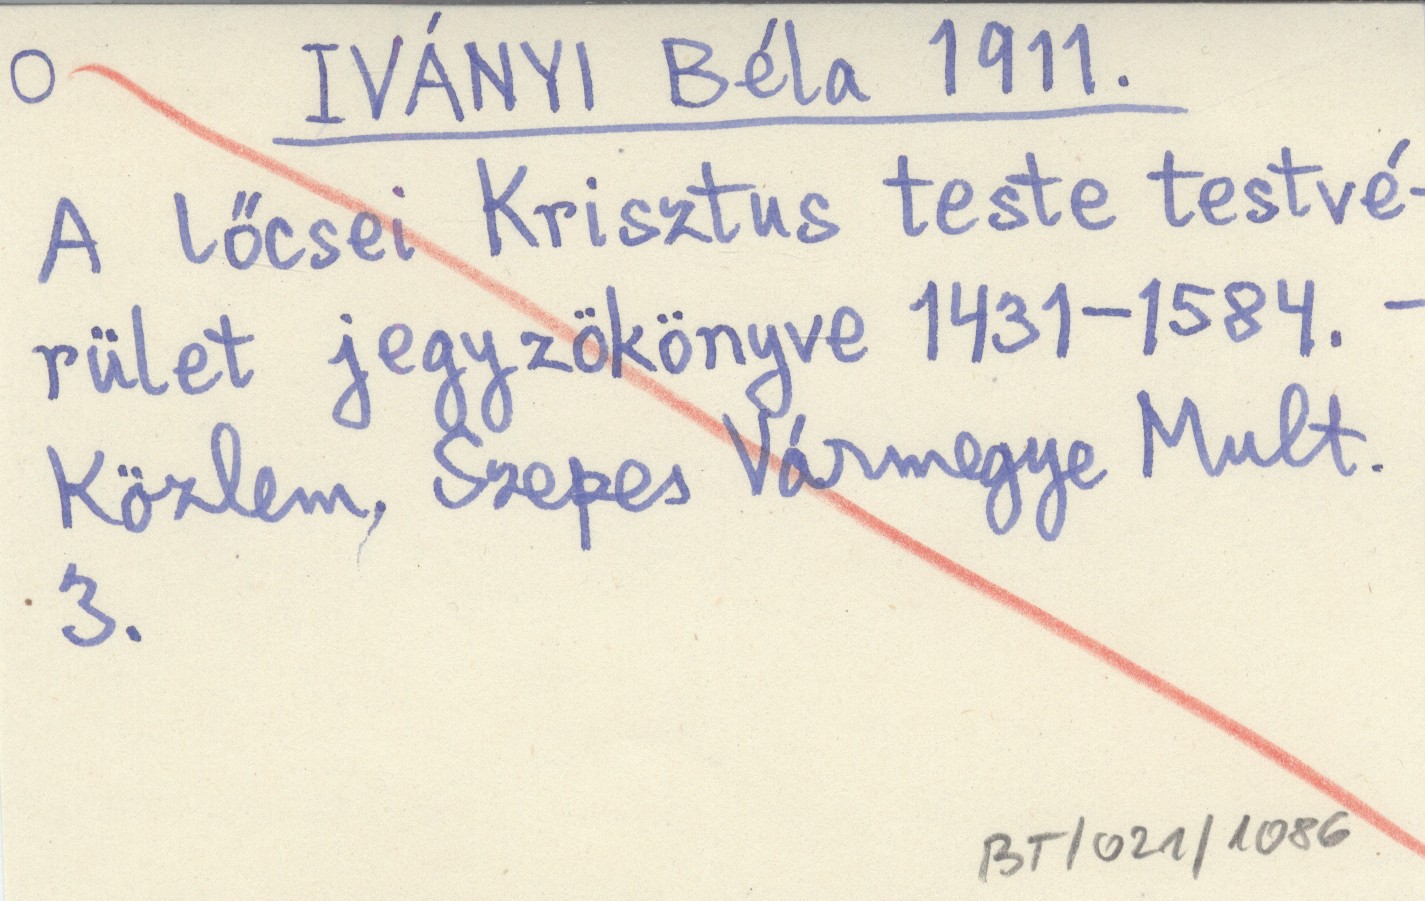 O IVÁNYI Béla 1911.
A lőcsei Krisztus teste testvé-
rület jegyzökönyve 1431-1584. -
Közlem. Szepes Vármegye Mult.
3.
BT/021/1086